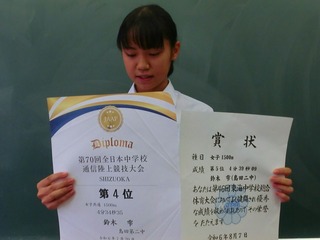 Diploma
第70回全日本中学校
通信陸上競技大会
SHIZUOKA
第4位
女子共通 1500m
4分34秒35
鈴木 雫
島田第二中
賞状
種目 女子1500m
成績 第5位 4分39秒09
鈴木 雫(島田二中)
あなたは第46回東海中学校総合
体育大会において頭書の優秀
な成績を収められたのでその栄誉
をたたえます
令和6年8月7日